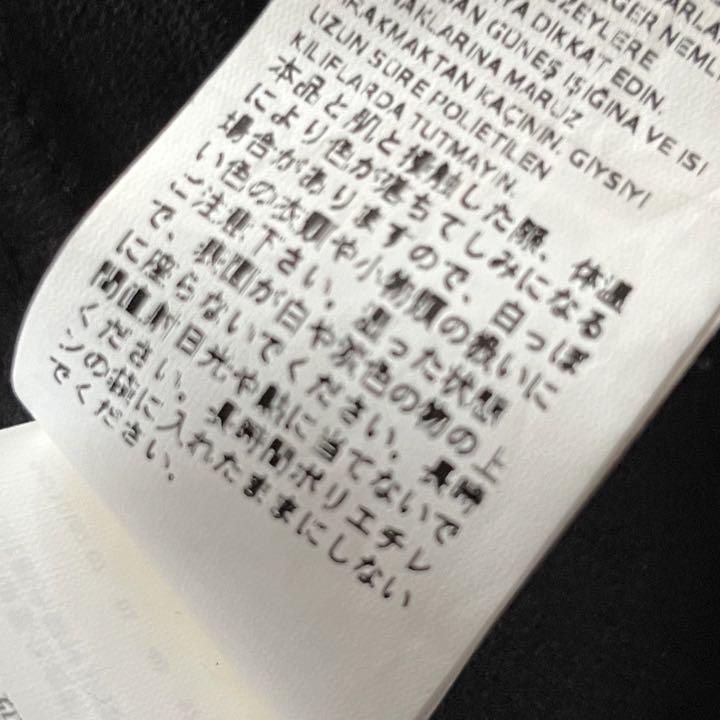 EĞER NEML
YÜZEYLERE
DİKKAT EDİN.
GÜNEŞ IŞIĞINA VE ISI
MARUZ
BIRAKMAKTAN KAÇININ. GİYSİYİ
UZUN SÜRE POLİETİLEN
KILIFLARDA TUTMAYIN.
本品と肌と接触した際、体温
により色が落ちてしみになる
場合がありますので、白っぽ
い色の衣類や小物類の扱いに
ご注意下さい。湿った状態
で、表面が白や淡色の物の上
に座らないでください。長時
間直射日光や熱に当てないで
ください。長時間ポリエチレ
ンの袋に入れたままにしない
でください。